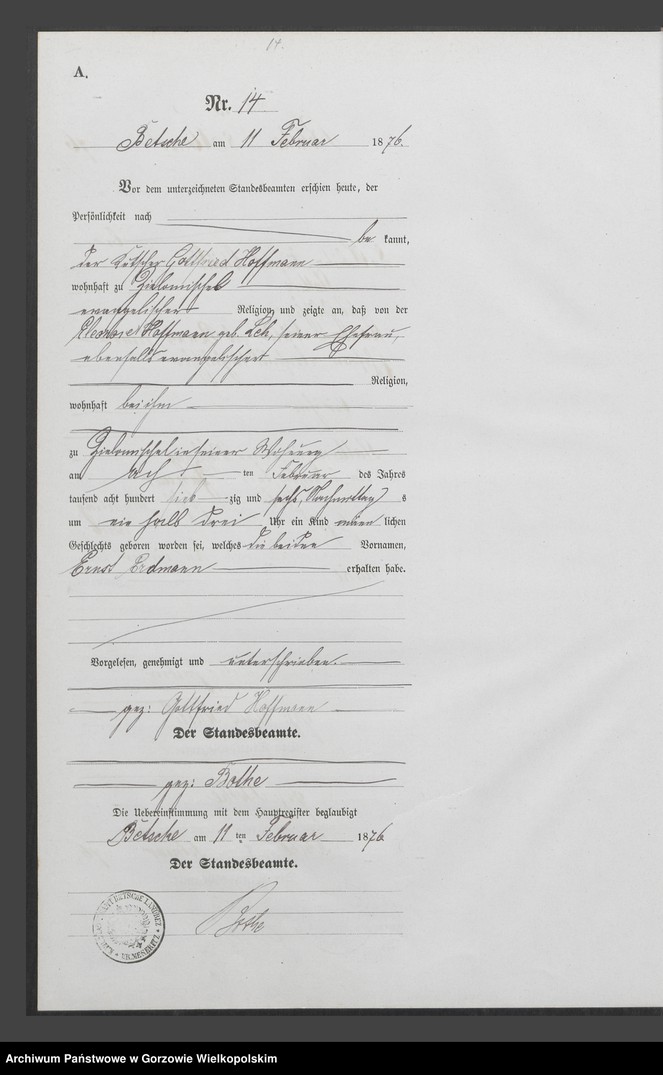 14.
A.
Nr. 14
Betsche am 11 Februar 1876.
Vor dem unterzeichneten Standesbeamten erschien heute, der
Persönlichkeit nach
be kannt,
der Kutscher Gottfried Hoffmann
wohnhaft zu Zielomischel
evangelischer Religion, und zeigte an, daß von der
Hoffmann geb. seiner Ehefrau,
ebenfalls evangelischer
Religion,
wohnhaft bei ihm
zu Zielomischel in seiner Wohnung
am acht ten Februar des Jahres
tausend acht hundert sieb zig und sechs, Nachmittag s
um ein halb drei Uhr ein Kind männ lichen
Geschlechts geboren worden sei, welches die beiden Vornamen,
Ernst Erdmann erhalten habe.
Vorgelesen, genehmigt und unterschrieben.
gez: Gottfried Hoffmann
Der Standesbeamte.
gez: Bothe
Die Uebereinstimmung mit dem Hauptregister beglaubigt
Betsche am 11 ten Februar 1876
Der Standesbeamte.
Bothe
Archiwum Państwowe w Gorzowie Wielkopolskim